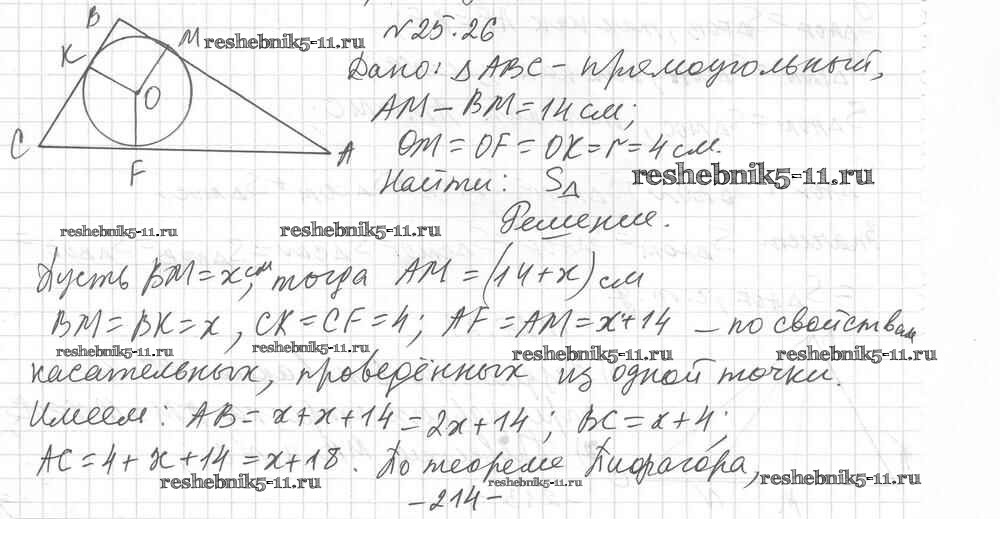 B
K
M
O
C
A
F
reshebnik5-11.ru
№25.26
Дано: △ABC – прямоугольный,
AM – BM = 14 см;
OM = OF = OK = r = 4 см.
Найти: S△
reshebnik5-11.ru
reshebnik5-11.ru
reshebnik5-11.ru
Решение.
Пусть BM = x см, тогда AM = (14 + x) см
BM = BK = x, CK = CF = 4; AF = AM = x + 14 – по свойствам
reshebnik5-11.ru
reshebnik5-11.ru
reshebnik5-11.ru
reshebnik5-11.ru
касательных, проведённых из одной точки.
Имеем: AB = x + x + 14 = 2x + 14; BC = x + 4;
AC = 4 + x + 14 = x + 18. По теореме Пифагора,
reshebnik5-11.ru
reshebnik5-11.ru
reshebnik5-11.ru
– 214 –